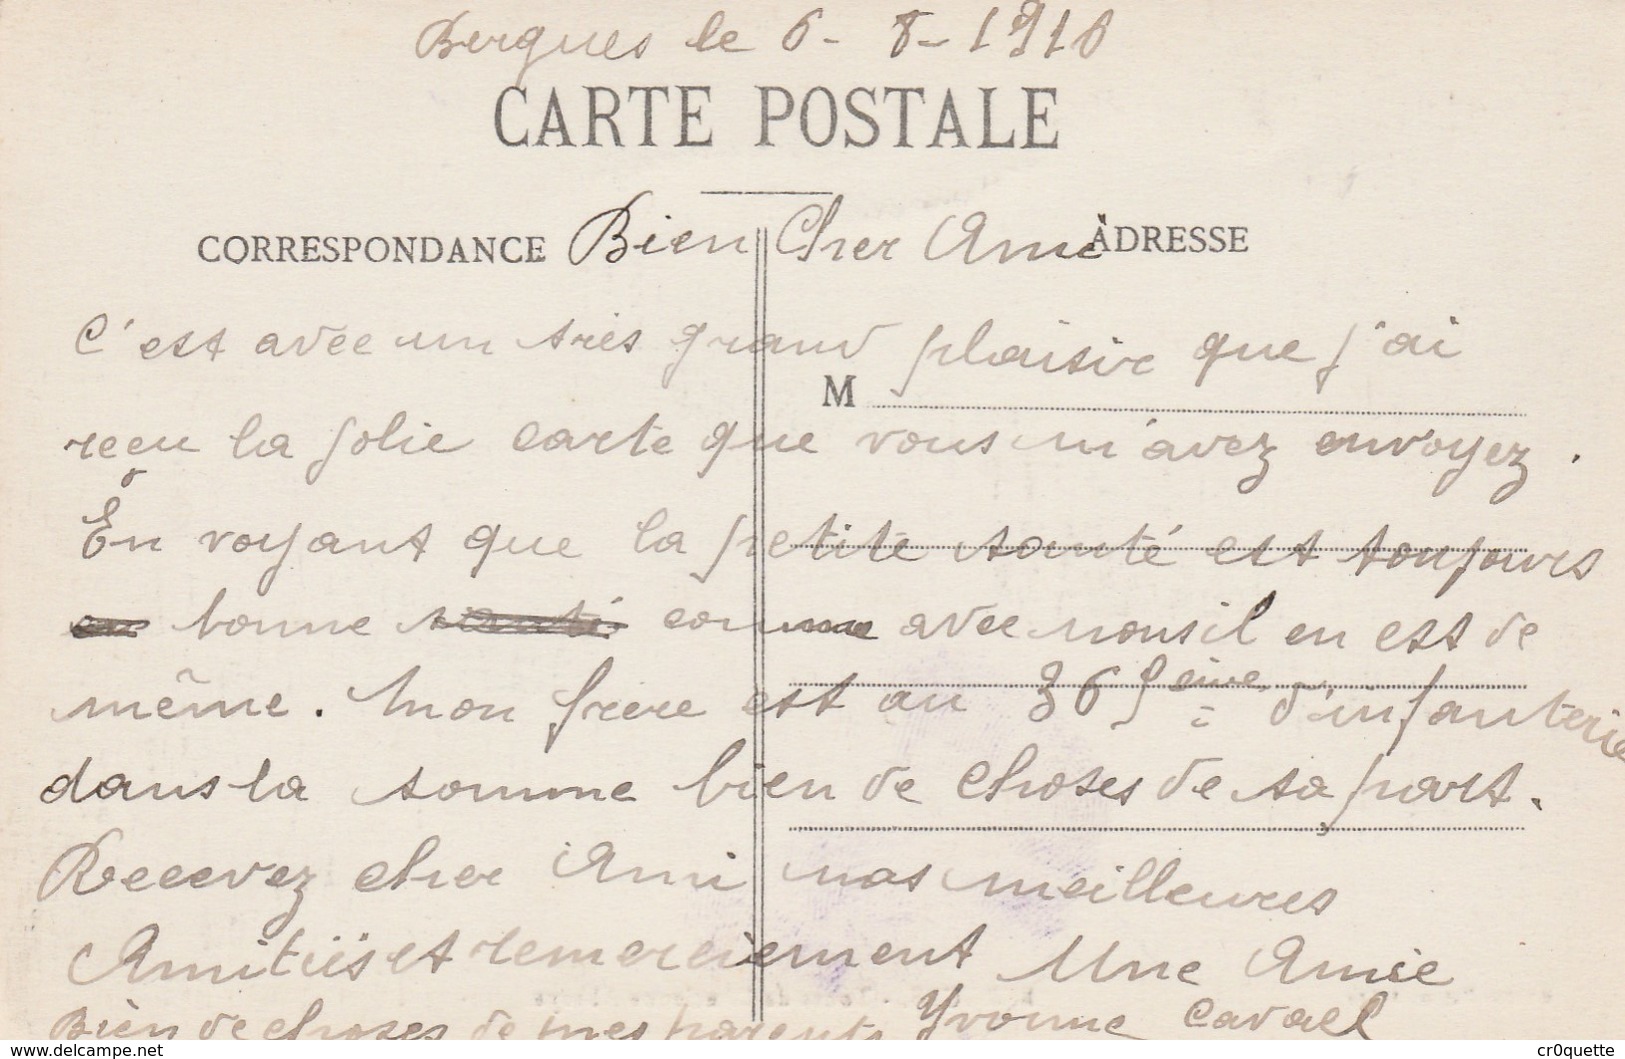 Bergues le 6 - 8 - 1916
CARTE POSTALE
CORRESPONDANCE Bien Cher Ami ADRESSE
C'est avec un très grand plaisir que j'ai
M
reçu la jolie carte que vous m'avez envoyez.
En voyant que la petite santé est toujours
bonne santé comme avec nous il en est de
même. Mon frère est au 365ème d'infanterie
dans la somme bien de choses de sa part.
Recevez cher Ami mes meilleures
Amitiés et remerciement Une Amie
Bien de choses de mes parents Yvonne
cr0quette